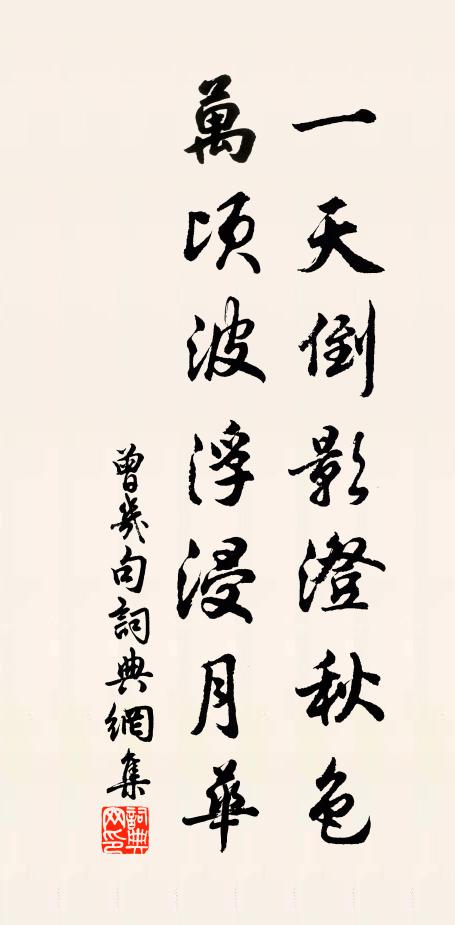 一天倒影澄秋色
萬頃波浮浸月華
曾幾句詞典網集
詞典網印